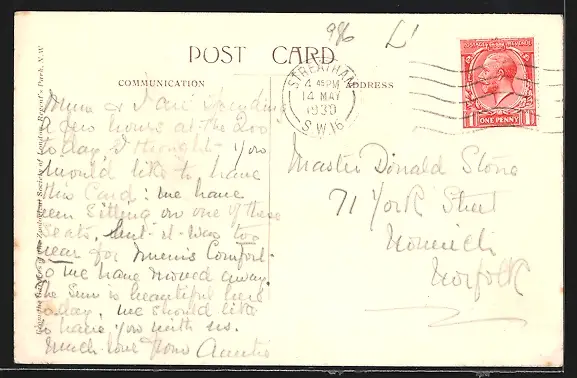 986 L1
POST CARD
COMMUNICATION
ADDRESS
STREATHAM
4 45 PM
14 MAY
1930
S.W.16
POSTAGE REVENUE
ONE PENNY
Mum & I are spending
a few hours at the Zoo
to day & thought you
would like to have
this Card: we have
been sitting on one of these
seats, but it was too
near for Mum's Comfort.
so we have moved away.
The Sun is beautiful here
to day, we should like
to have you with us.
Much love from Auntie
Master Donald Stone
71 York Street
Norwich
Norfolk
Zoological Society of London, Regent's Park, N.W